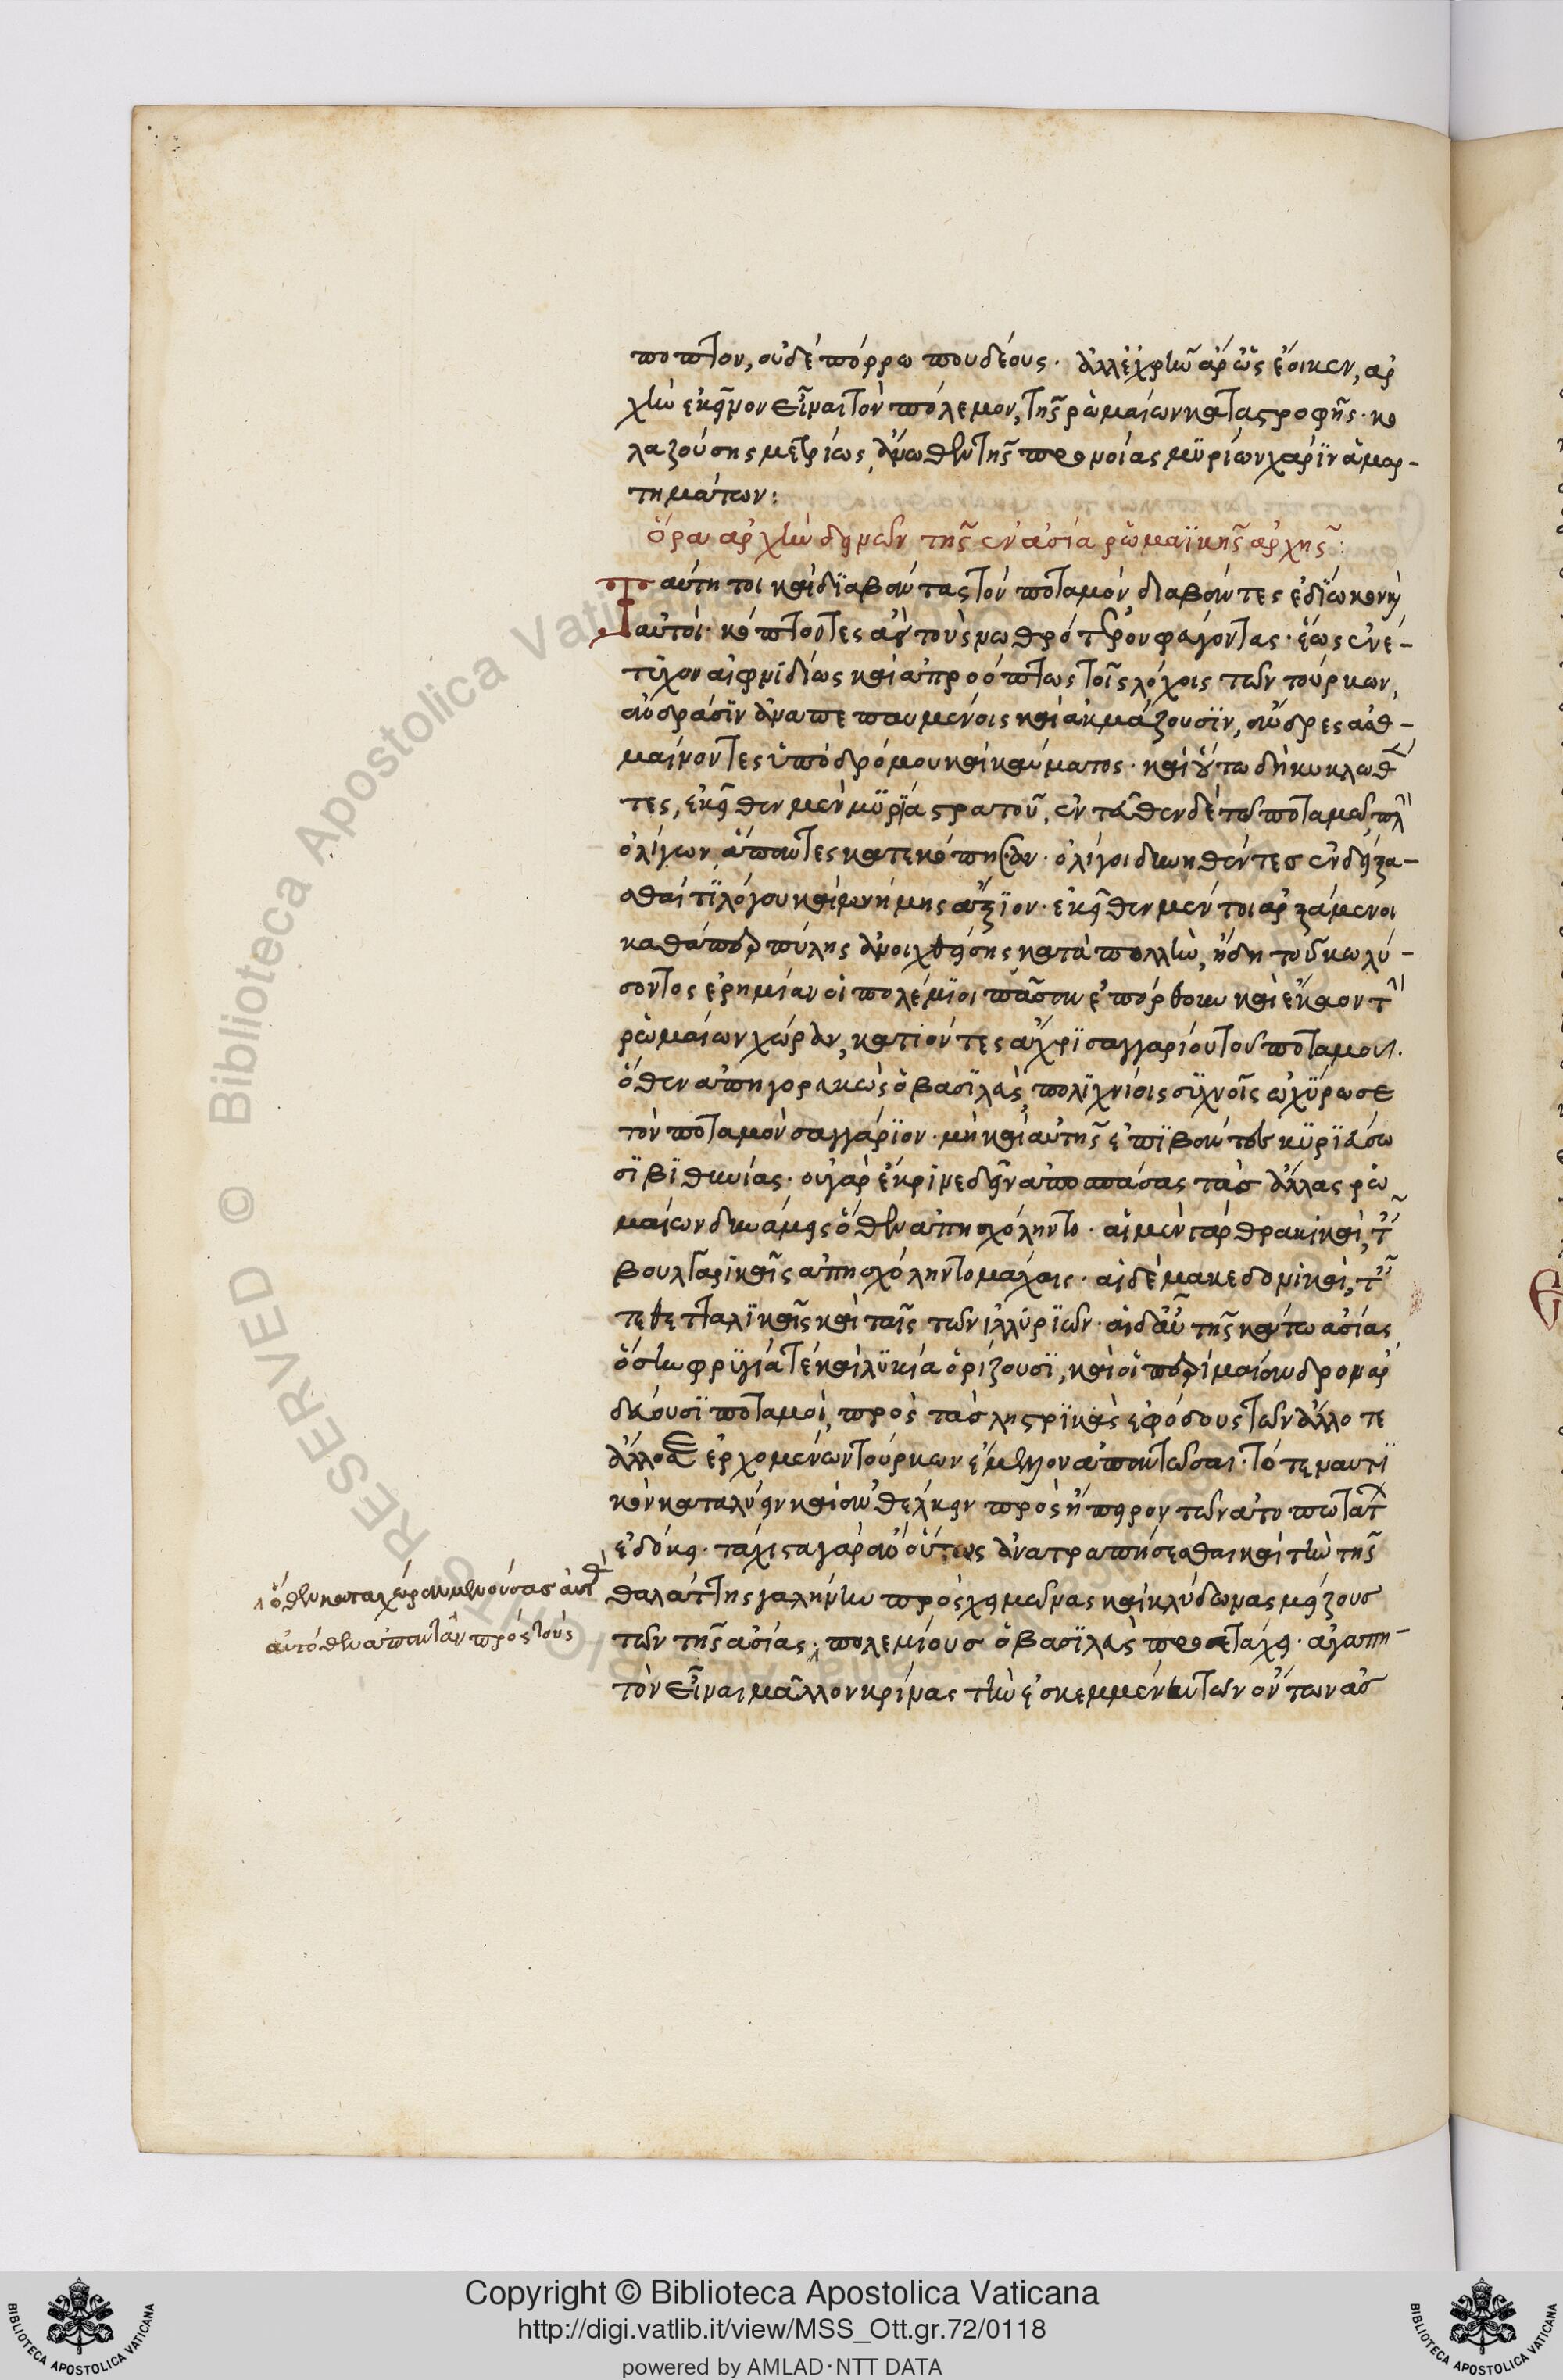 ποπτον, οὐδὲ πόρρω που δέους. ἀλλ' ἐχρῆν ἄρ' ὡς ἔοικεν, ἀρ
χὴν ἐκεῖνον εἶναι τὸν πόλεμον, τῆς ῥωμαίων καταστροφῆς. κο
λαζούσης μετρίως ἄνωθεν τῆς προνοίας μυρίων χάριν ἁμαρ-
τημάτων:
ὅρα ἀρχὴν δεινῶν τῆς ἐν ἀσία ῥωμαϊκῆς ἀρχῆς:
Ταύτη τοι καὶ διαβάντας τὸν ποταμὸν διαβάντες ἐδίωκον καὶ
αὐτοί. κόπτοντες ἀεὶ τοὺς νωθρότερον φεύγοντας. ἕως ἐνέ-
τυχον αἰφνιδίως καὶ ἀπροόπτως τοῖς λόχοις τῶν τούρκων,
ἀνδράσιν ἀναπεπαυμένοις καὶ ἀκμάζουσιν, ἄνδρες ἀσθ-
μαίνοντες ὑπὸ δρόμου καὶ καύματος. καὶ οὕτω δὴ κυκλωθέν
τες, ἐκεῖθεν μὲν μυρία στρατοῦ, ἐντεῦθεν δὲ τῶ ποταμῶ πλὴν
ὀλίγων ἅπαντες κατεκόπησαν. ὀλίγοι δυνηθέντες ἐνδείξα-
σθαί τι λόγου καὶ μνήμης ἄξιον. ἐκεῖθεν μέντοι ἀρξάμενοι
καθάπερ πύλης ἀνοιχθείσης κατὰ πολλὴν, ἤδη τοῦ κωλύ-
σοντος ἐρημίαν οἱ πολέμιοι πᾶσαν ἐπόρθουν καὶ ἔκαον τὴν
ῥωμαίων χώραν, κατιόντες ἄχρι σαγγαρίου τοῦ ποταμοῦ.
ὅθεν ἀπηγορευκὼς ὁ βασιλεὺς, πολιχνίοις συχνοῖς ὠχύρωσε
τὸν ποταμὸν σαγγάριον. μὴ καὶ αὐτῆς ἐπιβάντες κυριεύσω
σι βιθυνίας. οὐ γὰρ ἔκρινε δεῖν ἀποσπάσας τὰς ἄλλας ῥω
μαίων δυνάμεις ὅθεν ἀπησχόληντο. αἱ μὲν γὰρ θρακικαὶ, ταῖς
βουλγαρικαῖς ἀπησχόληντο μάχαις. αἱ δὲ μακεδονικαὶ, ταῖς
τε θετταλικαῖς καὶ ταῖς τῶν ἰλλυριῶν. αἱ δ' αὖ τῆς κάτω ἀσίας
ὅσην φρυγία τε καὶ λυκία ὁρίζουσι, καὶ οἱ περὶ μαίανδρον ἀρ
δεύουσι ποταμοὶ, πρὸς τὰς ληστρικὰς ἐφόδους τῶν ἄλλοτε
ἄλλοθεν ἐρχομένων τούρκων ἔμενον ἀπαντῶσαι. τό τε ναυτι
κὸν καταλύειν καὶ ἀνθέλκειν πρὸς ἤπειρον τῶν ἀτοπωτάτων
ἐδόκει. τάχιστα γὰρ ἂν οὕτως ἀνατραπήσεσθαι καὶ τὴν τῆς
θαλάττης γαλήνην πρὸς χειμῶνας καὶ κλύδωνας μείζους
τῶν τῆς ἀσίας. πολεμίους ὁ βασιλεὺς προσετάχει. ἀγαπη-
τὸν εἶναι μᾶλλον κρίνας τὴν ἐσκεμμένην τῶν ὄντων ἀσ
ὅθεν κατὰ χώραν μενούσας
αὐτόθεν ἀπαντᾶν πρὸς τοὺς
RESERVED © Biblioteca Apostolica Vaticana
Copyright © Biblioteca Apostolica Vaticana
http://digi.vatlib.it/view/MSS_Ott.gr.72/0118
powered by AMLAD·NTT DATA
BIBLIOTECA APOSTOLICA VATICANA
BIBLIOTECA APOSTOLICA VATICANA